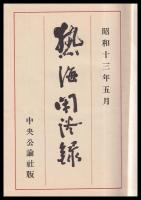 昭和十三年五月
熱海閑談録
中央公論社版